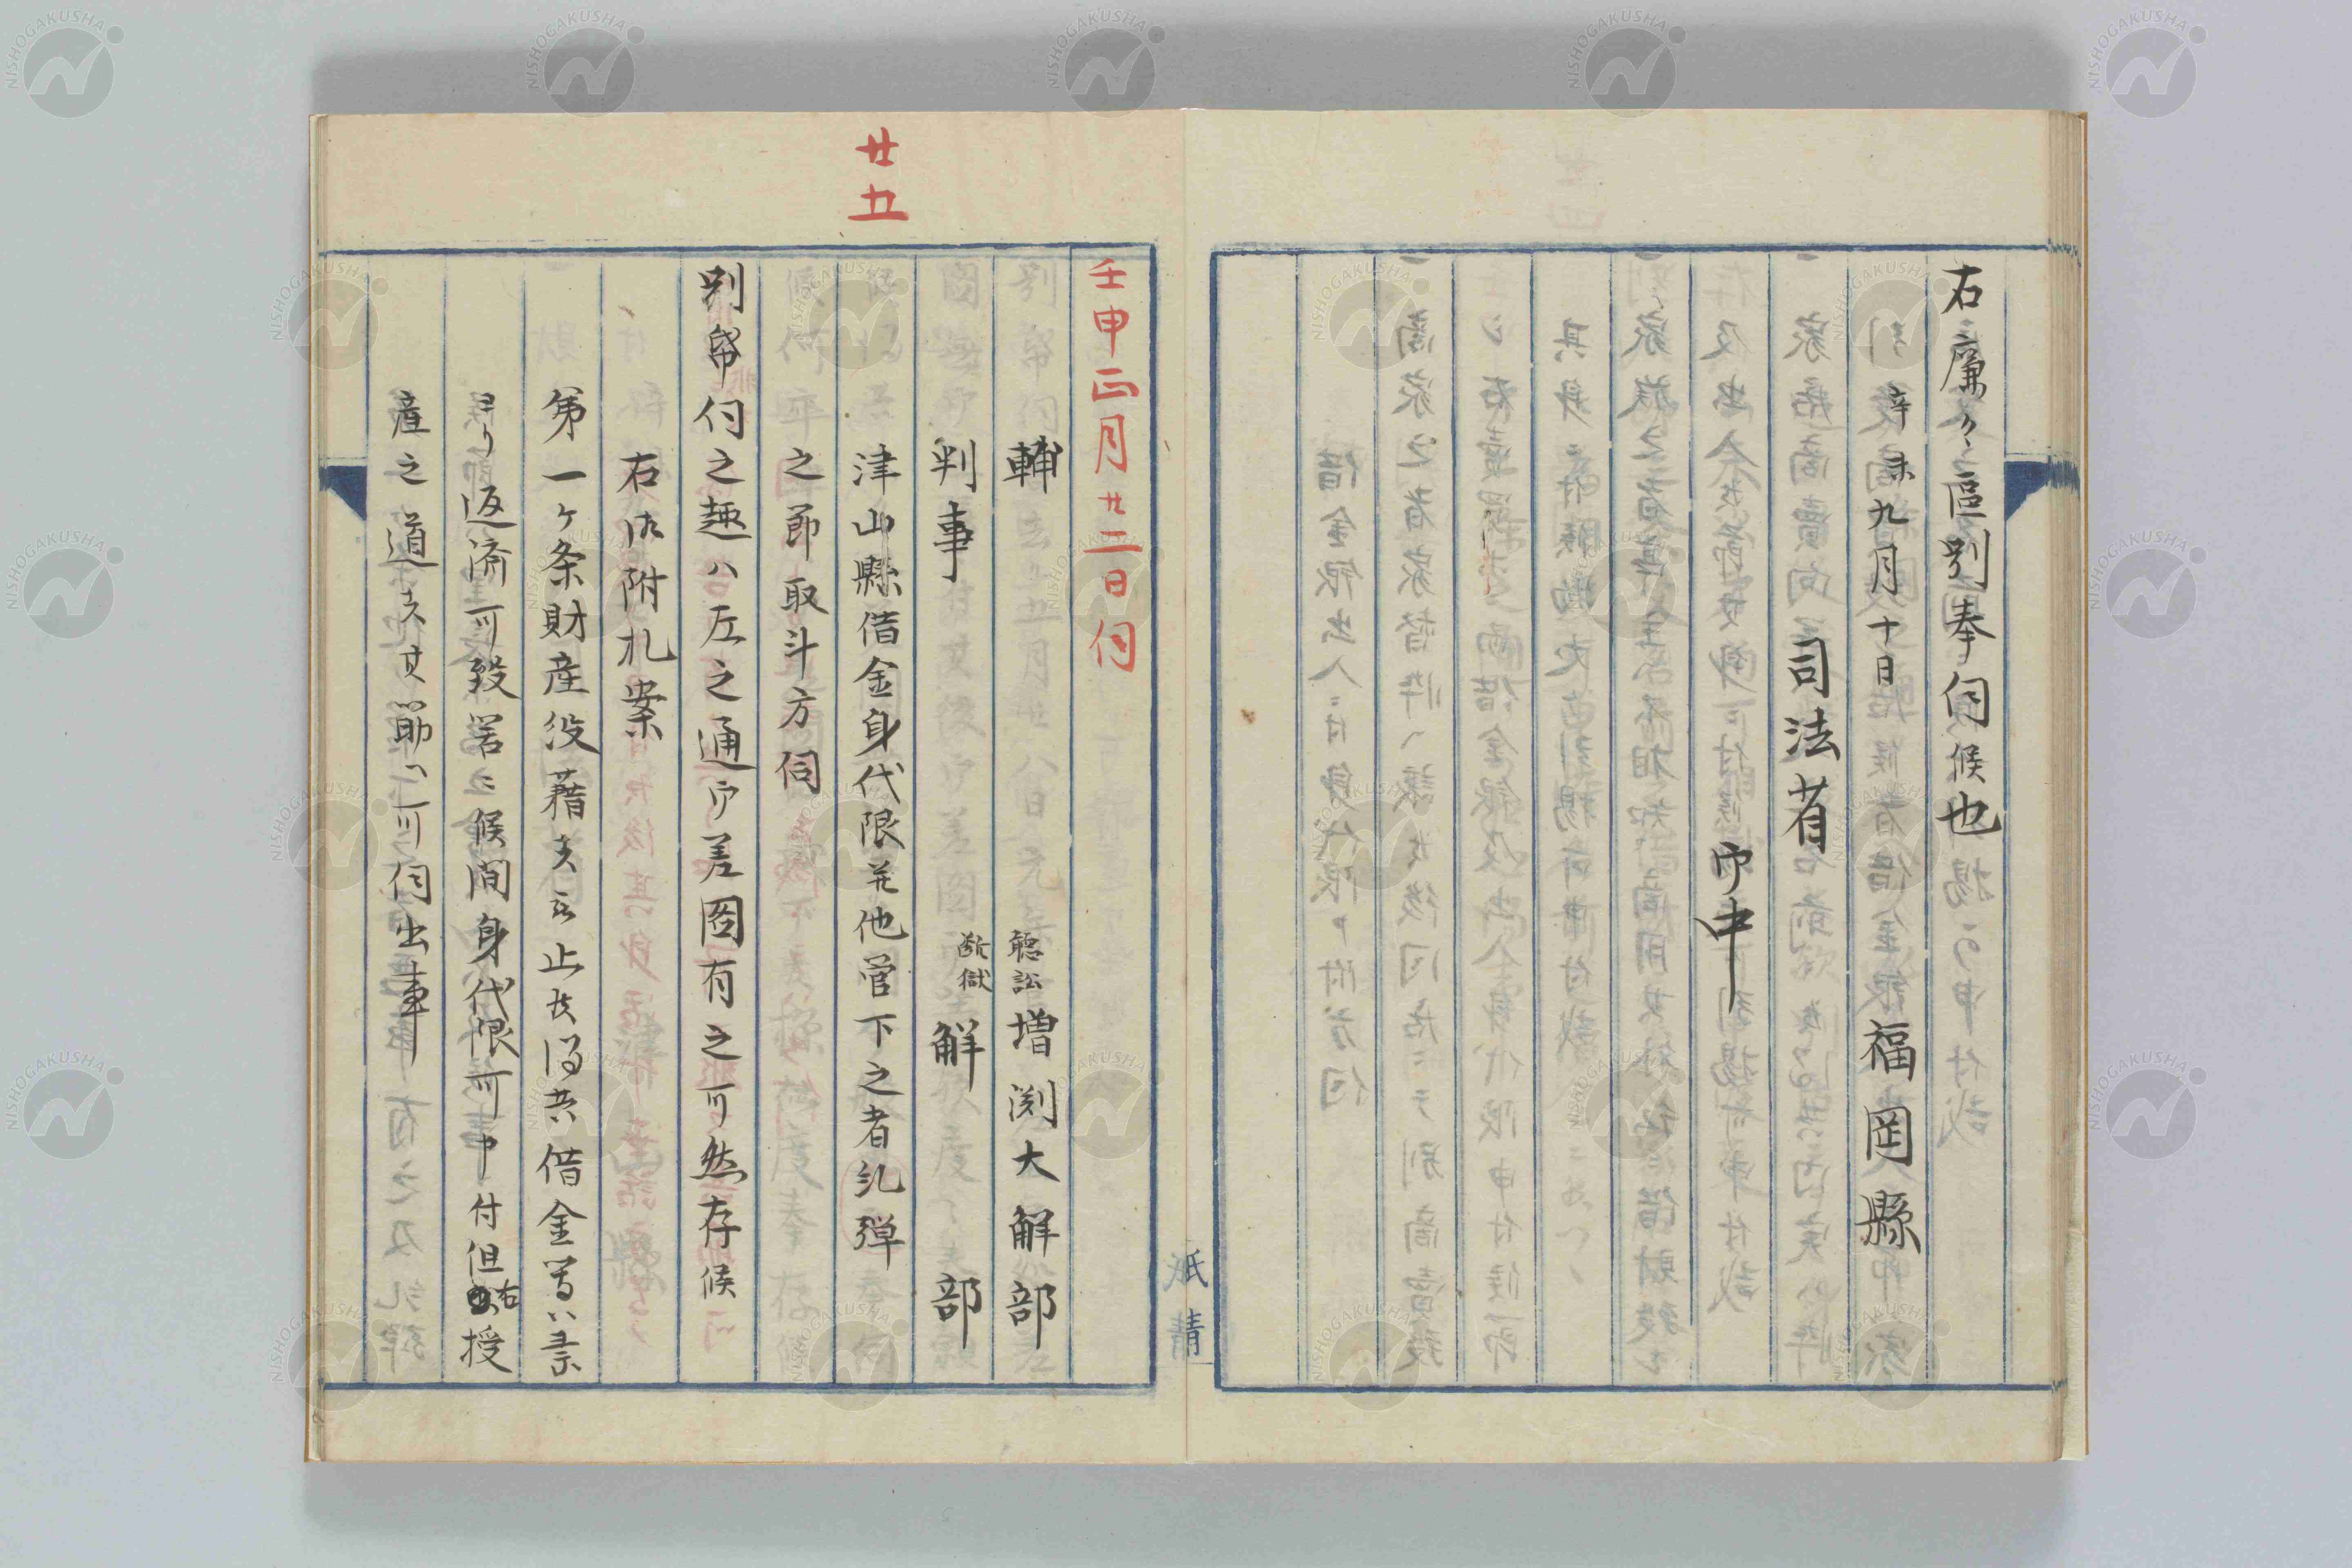 右廉々區別奉伺候也
辛未九月十日
福岡縣
司法省
御中
廿五
壬申正月廿二日伺
輔
聴訟増渕大解部
判事
断獄解部
津山縣借金身代限并他管下之者糺弾
之節取斗方伺
別帋伺之趣ハ左之通御差圖有之可然存候
右御附札案
第一ケ条財産没藉夫 止 借金等ハ
ヨリ返済可致筈ニ候間身代限可申付但右授
産之道 其節ハ可伺出事
紙
精
NISHOGAKUSHA